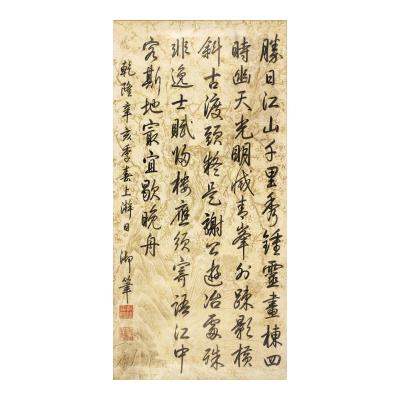 勝日江山千里秀鍾靈畫棟四
時幽天光明滅青峯外疎影橫
斜古渡頭疑是謝公遊冶處殊
非逸士賦歸樓應須寄語江中
客斯地最宜歇晚舟
乾隆辛亥季春上澣日御筆